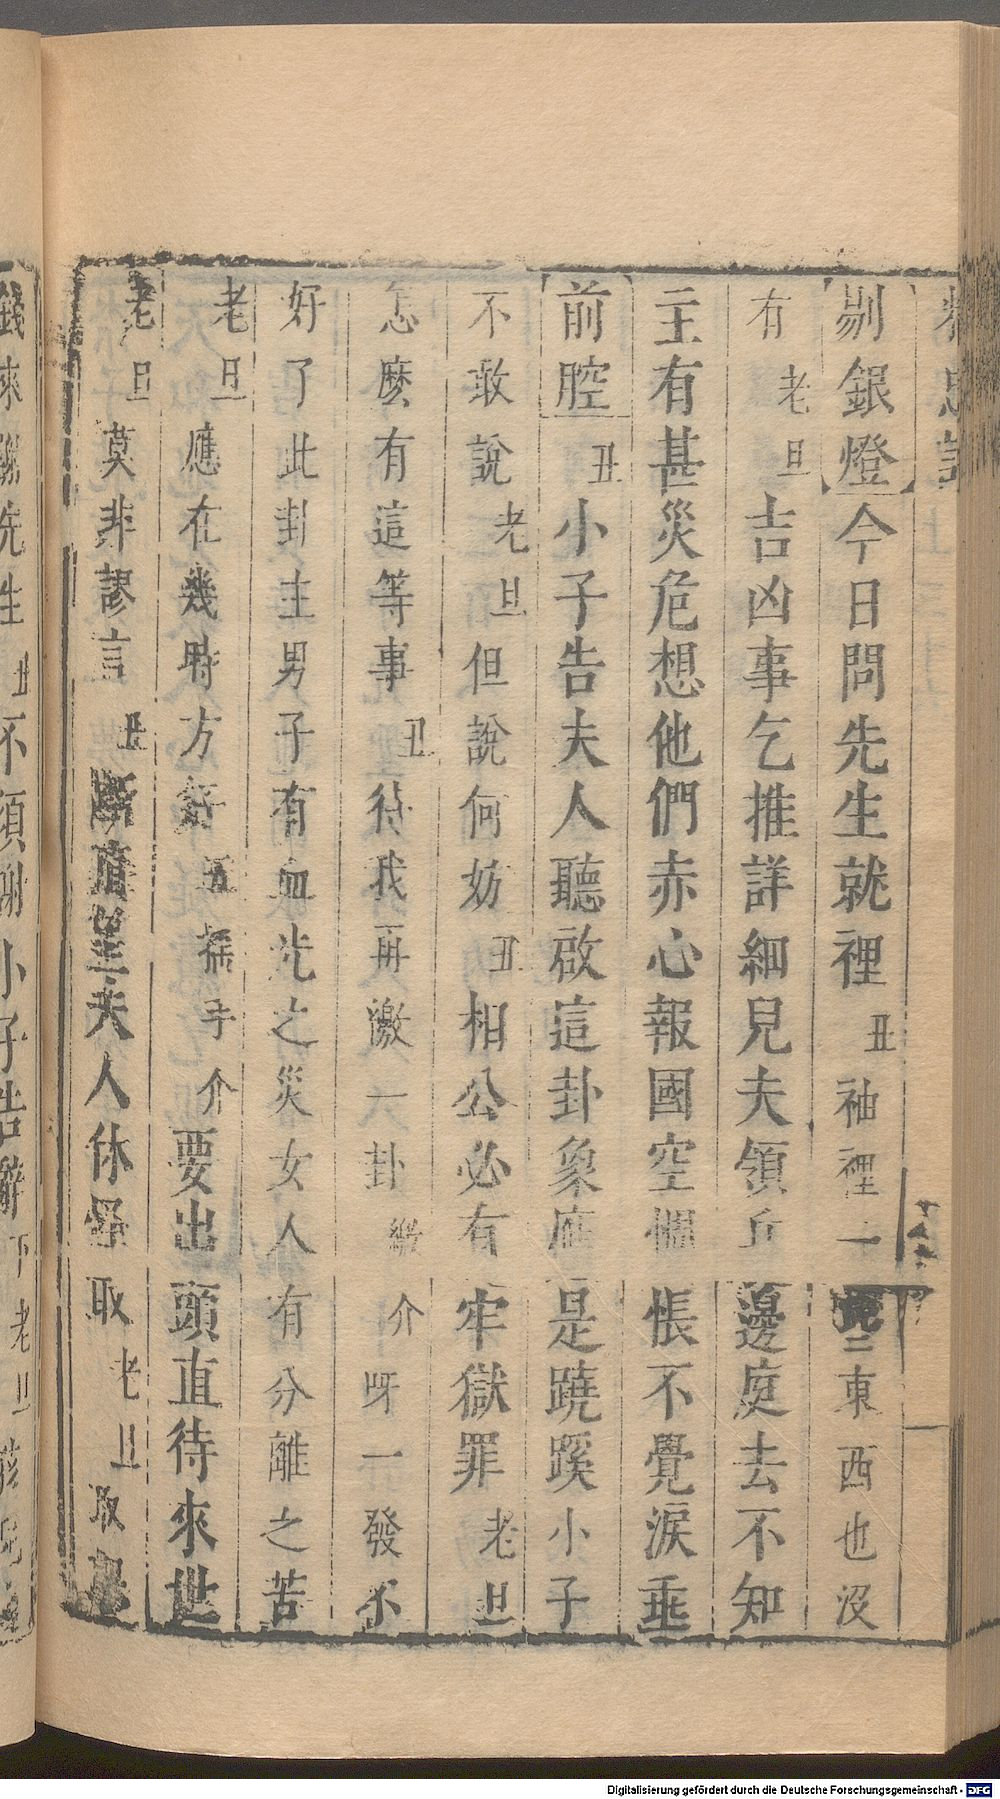 剔銀燈今日問先生就裡丑袖裡一東西也沒
有老旦吉凶事乞推詳細見夫領丘邊庭去不知
主有甚災危想他們赤心報國空惆悵不覺淚垂
前腔丑小子告夫人聽啟這卦象應是蹺蹊小子
不敢說老旦但說何妨丑相公必有牢獄罪老旦
怎麼有這等事丑待我再激一卦介呀一發不
好了此卦主男子有血光之災女人有分離之苦
老旦應在幾時方好丑搖手介要出頭直待來世
老旦莫非謬言丑斷直夫人休取老旦取
錢來謝先生丑不須謝小子告辭下老旦孩兒
Digitalisierung gefördert durch die Deutsche Forschungsgemeinschaft - DFG